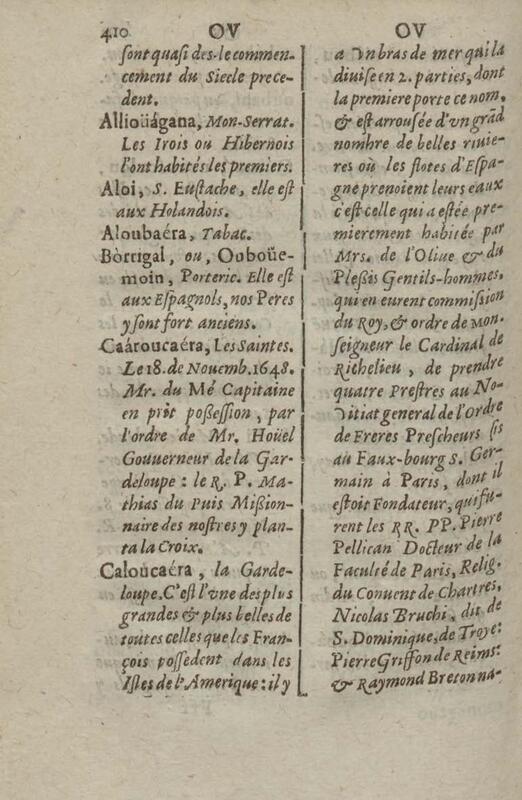 410 OV OV
sont quasi des-le commen-
cement du Siecle prece-
dent.
Alliouágana, Mon-Serrat.
Les Irois ou Hibernois
l'ont habités les premiers.
Aloi, S. Eustache, elle est
aux Holandois.
Aloubaéra, Tabac.
Borrigal, ou, Ouboüe-
moin, Porteric. Elle est
aux Espagnols, nos Peres
y sont fort anciens.
Caároucaéra, Les Saintes.
Le 18. de Nouemb. 1648.
Mr. du Mé Capitaine
en prit possession, par
l'ordre de Mr. Hoüel
Gouuerneur de la Gar-
deloupe : le R. P. Ma-
thias du Puis Mission-
naire des nostres y plan-
ta la Croix.
Caloucaéra, la Garde-
loupe. C'est l'vne des plus
grandes & plus belles de
toutes celles que les Fran-
çois possedent dans les
Isles de l'Amerique : il y
a vn bras de mer qui la
diuise en 2. parties, dont
la premiere porte ce nom,
& est arrousée d'vn grãd
nombre de belles riuie-
res où les flotes d'Espa-
gne prenoient leurs eaux
c'est celle qui a estée pre-
mierement habitée par
Mrs. de l'Oliue & du
Plessis Gentils-hommes,
qui en eurent commission
du Roy, & ordre de Mon-
seigneur le Cardinal de
Richelieu, de prendre
quatre Prestres au No-
vitiat general de l'Ordre
de Freres Prescheurs sis
au Faux-bourg S. Ger-
main à Paris, dont il
estoit Fondateur, qui fu-
rent les RR. PP. Pierre
Pellican Docteur de la
Faculté de Paris, Relig.
du Conuent de Chartres,
Nicolas Bruchi, dit de
S. Dominique, de Troye:
Pierre Griffon de Reims:
& Raymond Breton na-